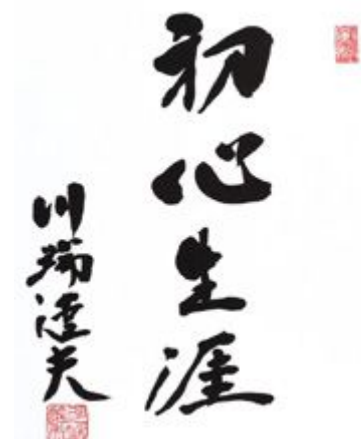 初心生涯
川端達夫